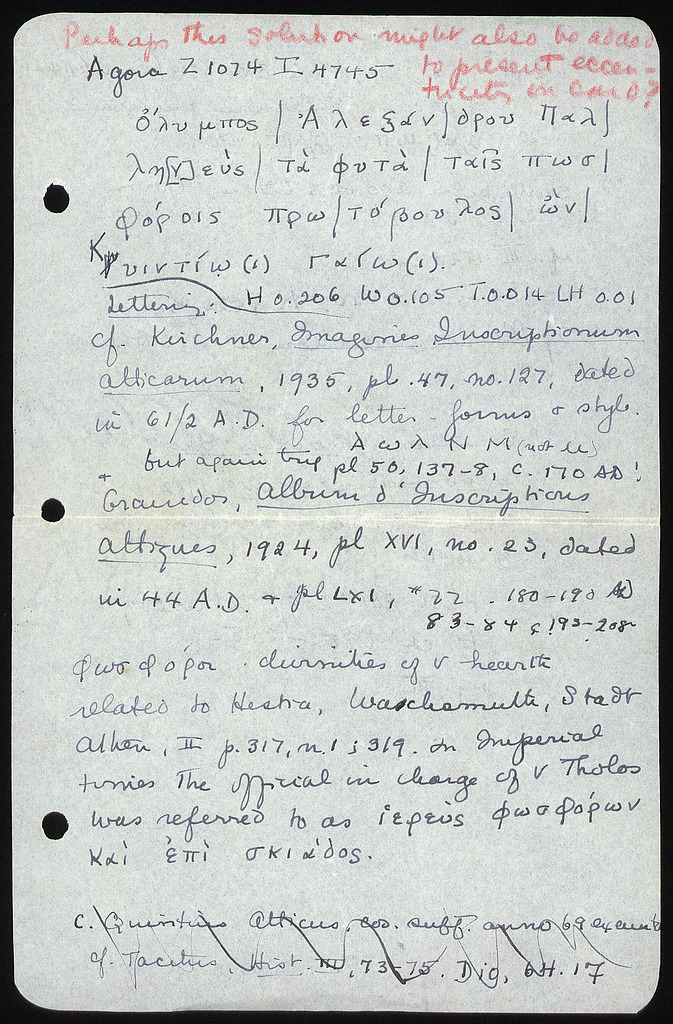 Perhaps this solution might also be added
to present eccen-
tricity on card?
Agora Z 1074 I 4745
Ὄλυμπος | Ἀλεξάν|δρου Παλ|
λη[ν]εὺς | τὰ φυτὰ | ταῖς πωσ|
φόροις πρω|τόβουλος| ὢν|
Κυιντίῳ (ι) Γαΐῳ (ι).
Lettering: H 0.206 W 0.105 T. 0.014 LH 0.01
cf. Kirchner, Imagines Inscriptionum
Atticarum, 1935, pl. 47, no. 127, dated
in 61/2 A.D. for letter-forms & style.
Α ω λ Ν Μ (not μ)
but again try pl 50, 137-8, c. 170 AD!
+ Graindor, Album d'Inscriptions
Attiques, 1924, pl XVI, no. 23, dated
in 44 A.D. & pl LXI, #77. 180-190 AD
83-84 & 193-208
φωσφόροι. divinities of v hearth
related to Hestia, Waschsmuth, Stadt
Athen, II p. 317, n. 1; 319. In Imperial
times the official in charge of v Tholos
was referred to as ἱερεὺς φωσφόρων
καὶ ἐπὶ σκιάδος.
C. Quintius Atticus, cos. suff. anno 69
cf. Tacitus, Hist. III, 73-75. Dio, 64. 17